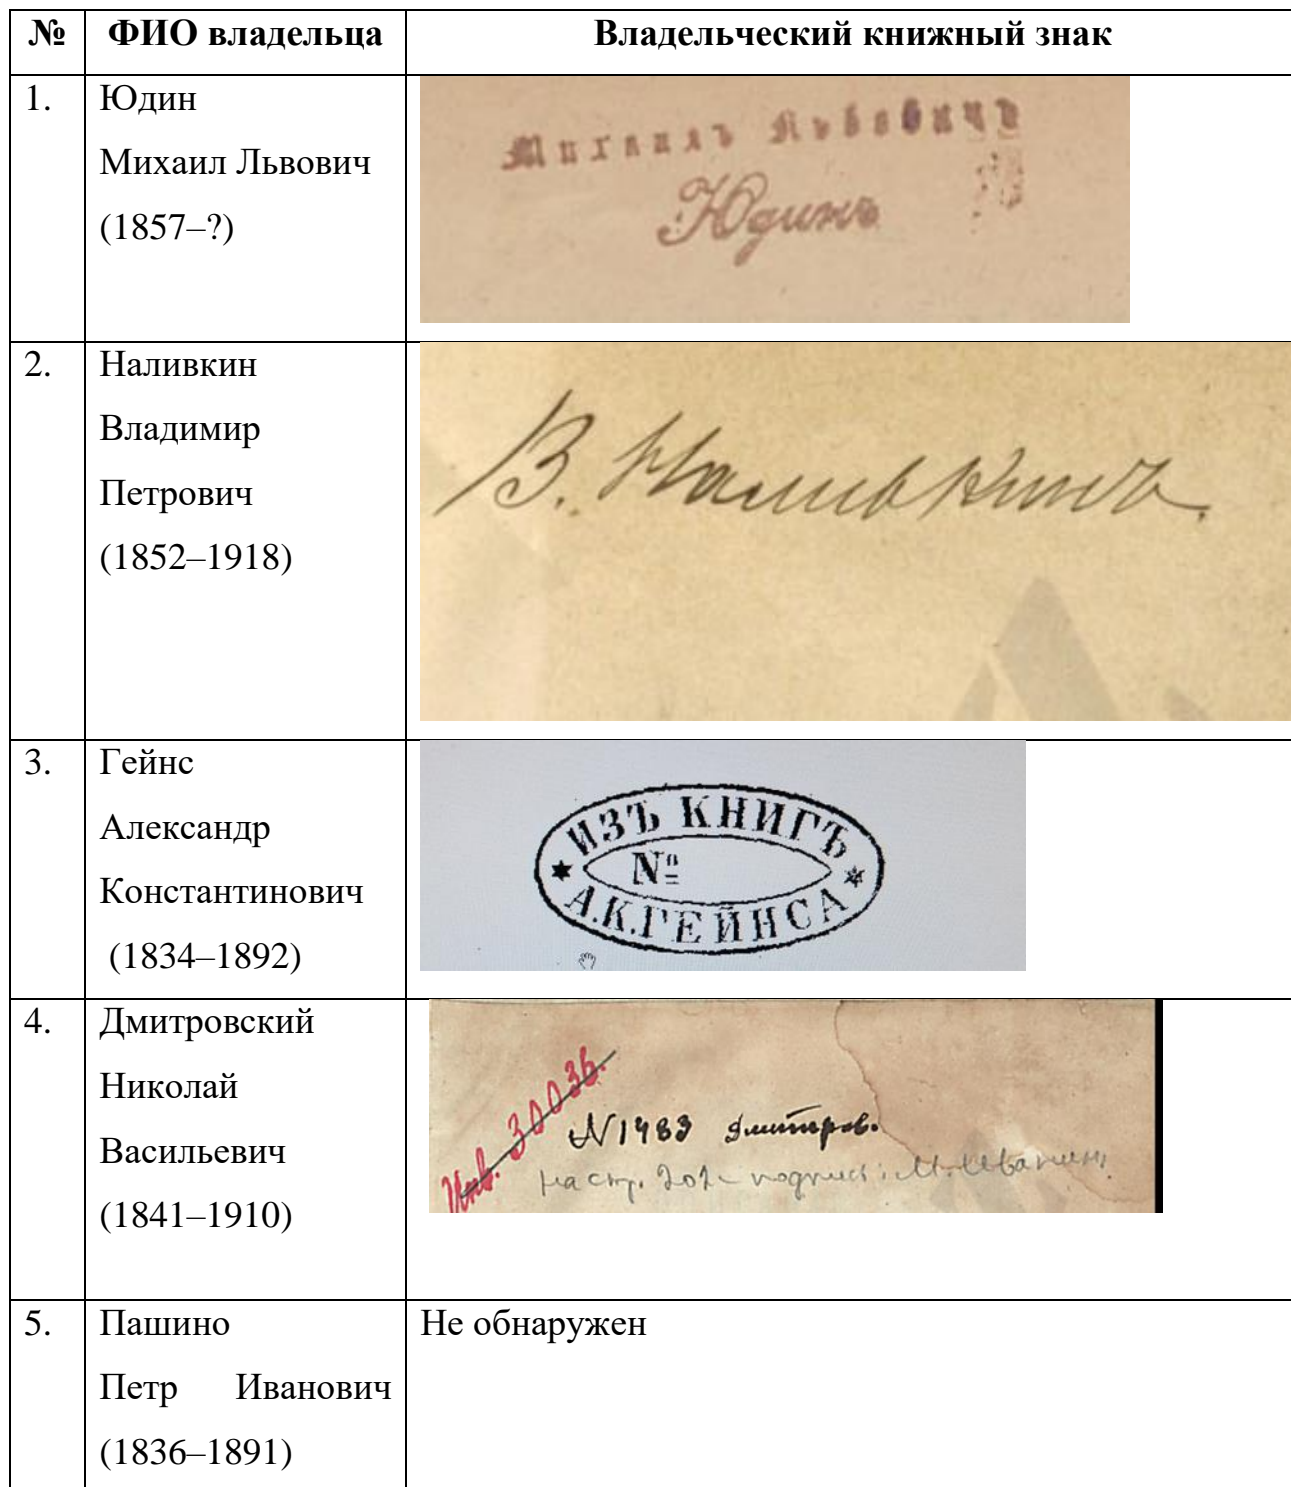 № ФИО владельца Владельческий книжный знак
1. Юдин
Михаил Львович
(1857–?)
Михаилъ Львовичъ
Юдинъ
2. Наливкин
Владимир
Петрович
(1852–1918)
В. Наливкинъ.
3. Гейнс
Александр
Константинович
(1834–1892)
ИЗЪ КНИГЪ
№
А.К.ГЕЙНСА
4. Дмитровский
Николай
Васильевич
(1841–1910)
Инв. 30036.
N1483 Дмитров.
на стр. 202 – подпись: М. Иванин
5. Пашино
Петр Иванович
(1836–1891)
Не обнаружен